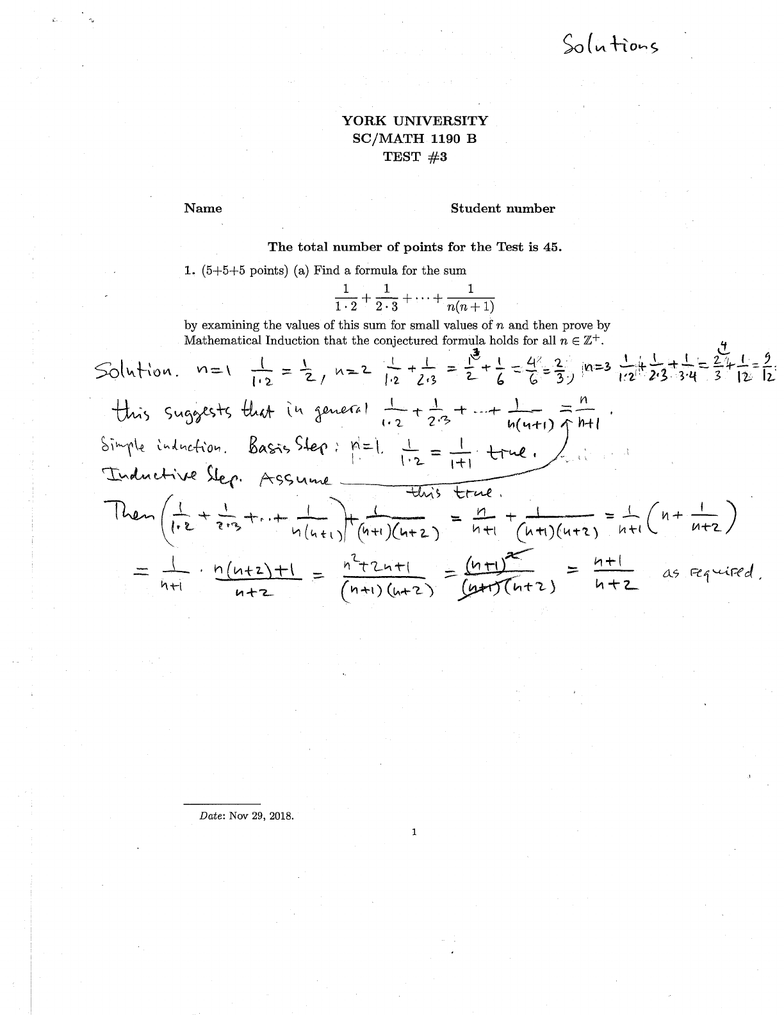 Solutions
YORK UNIVERSITY
SC/MATH 1190 B
TEST #3
Name Student number
The total number of points for the Test is 45.
1. (5+5+5 points) (a) Find a formula for the sum
1/(1·2) + 1/(2·3) + ··· + 1/(n(n+1))
by examining the values of this sum for small values of n and then prove by
Mathematical Induction that the conjectured formula holds for all n ∈ Z⁺.
Solution. n=1 1/(1·2) = 1/2, n=2 1/(1·2) + 1/(2·3) = 1/2 + 1/6 = 4/6 = 2/3, n=3 1/(1·2) + 1/(2·3) + 1/(3·4) = 2/3 + 1/12 = 9/12
this suggests that in general 1/(1·2) + 1/(2·3) + ··· + 1/(n(n+1)) = n/(n+1).
Simple induction. Basis Step: n=1. 1/(1·2) = 1/(1+1) true.
Inductive Step. Assume this true.
Then (1/(1·2) + 1/(2·3) + ··· + 1/(n(n+1))) + 1/((n+1)(n+2)) = n/(n+1) + 1/((n+1)(n+2)) = 1/(n+1) (n + 1/(n+2))
= 1/(n+1) · (n(n+2)+1)/(n+2) = (n²+2n+1)/((n+1)(n+2)) = (n+1)²/((n+1)(n+2)) = (n+1)/(n+2) as required.
Date: Nov 29, 2018.
1